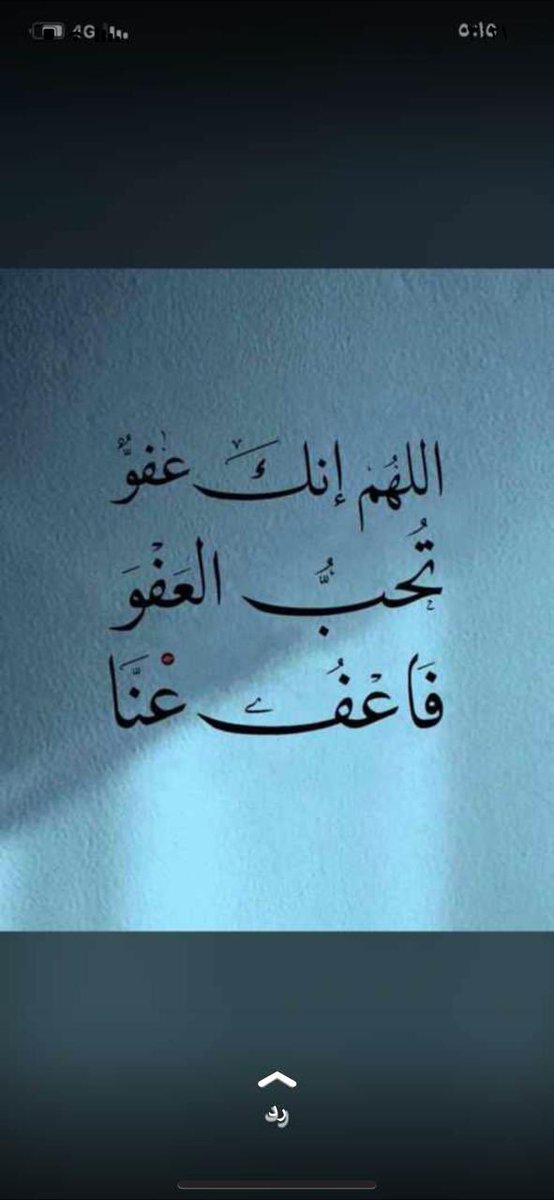 4G
٥:١٥
اللهُم إنكَ عَفوٌّ
تُحبُّ العَفوَ
فَاعْفُ عْنَّا
رد